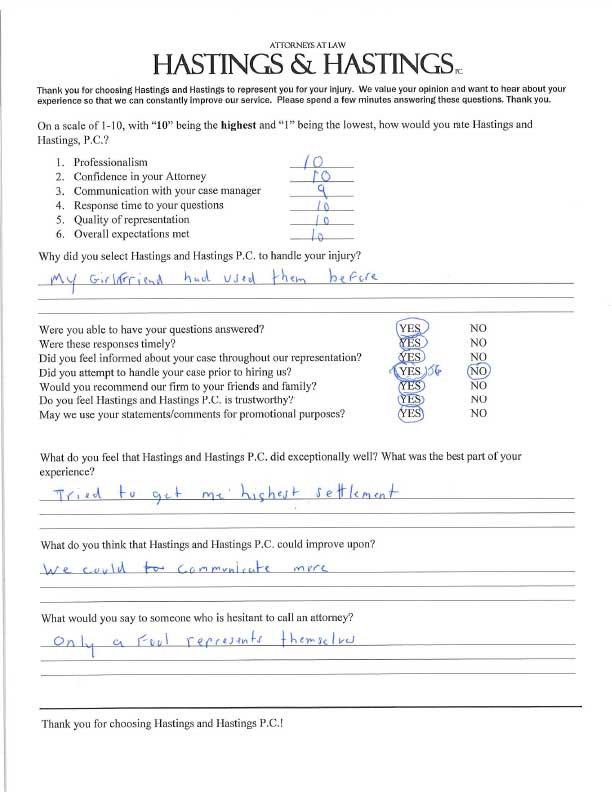 ATTORNEYS AT LAW
HASTINGS & HASTINGS P.C.
Thank you for choosing Hastings and Hastings to represent you for your injury. We value your opinion and want to hear about your
experience so that we can constantly improve our service. Please spend a few minutes answering these questions. Thank you.
On a scale of 1-10, with “10” being the highest and “1” being the lowest, how would you rate Hastings and
Hastings, P.C.?
1. Professionalism 10
2. Confidence in your Attorney 10
3. Communication with your case manager 9
4. Response time to your questions 10
5. Quality of representation 10
6. Overall expectations met 10
Why did you select Hastings and Hastings P.C. to handle your injury?
My Girlfriend had used them before
Were you able to have your questions answered? YES NO
Were these responses timely? YES NO
Did you feel informed about your case throughout our representation? YES NO
Did you attempt to handle your case prior to hiring us? YES NO
Would you recommend our firm to your friends and family? YES NO
Do you feel Hastings and Hastings P.C. is trustworthy? YES NO
May we use your statements/comments for promotional purposes? YES NO
What do you feel that Hastings and Hastings P.C. did exceptionally well? What was the best part of your
experience?
Tried to get me highest settlement
What do you think that Hastings and Hastings P.C. could improve upon?
We could to communicate more
What would you say to someone who is hesitant to call an attorney?
Only a Fool represents themselves
Thank you for choosing Hastings and Hastings P.C.!